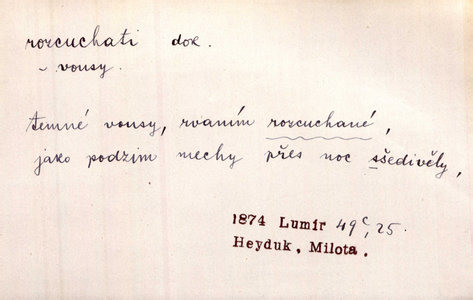 rozcuchati dok.
~ vousy.
temné vousy, rvaním rozcuchané,
jako podzim mechy přes noc sšedivěly,
1874 Lumír 49c, 25.
Heyduk, Milota.